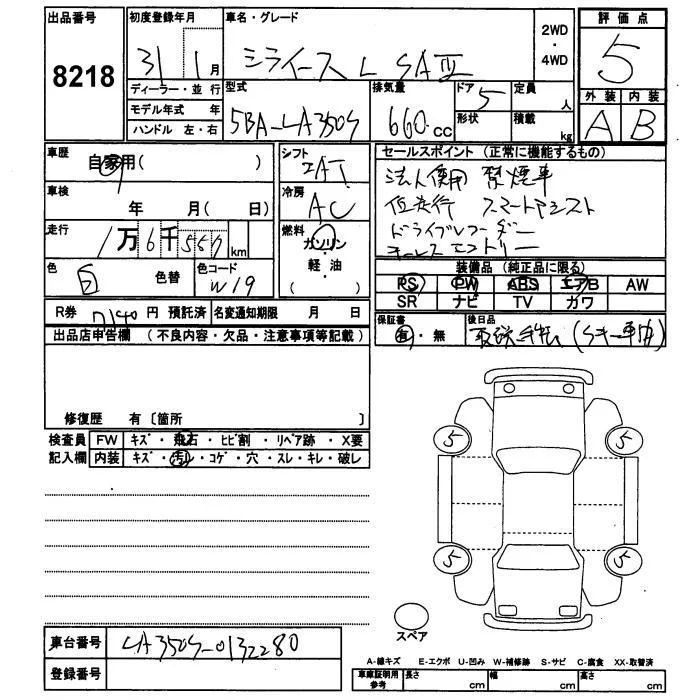 出品番号
8218
初度登録年月
31 1月
ディーラー・並 行
モデル年式 年
ハンドル 左・右
車名・グレード
ミライース L SAⅢ
2WD
・
4WD
型式
5BA-LA350S
排気量
660cc
ドア
5
形状
定員
人
積載
kg
評 価 点
5
外 装
A
内 装
B
車歴
自家用( )
車検
年 月( 日)
走行
1万6千557km
色
白
色替
色コード
W19
シフト
IAT
冷房
AC
燃料
ガソリン
軽・油
( )
セールスポイント (正常に機能するもの)
法人使用 禁煙車
低走行 スマートアシスト
ドライブレコーダー
キーレスエントリー
装備品 (純正品に限る)
PS PW ABS エアB AW
SR ナビ TV カワ
R券 7140 円 預託済
名変通知期限 月 日
保証書
有・無
後日品
取説
出品店申告欄 (不良内容・欠品・注意事項等記載)
修復歴 有〔箇所 〕
検査員
記入欄
FW キズ・飛石・ヒビ割・リペア跡・X要
内装 キズ・汚レ・コゲ・穴・スレ・キレ・破レ
5 5
5 5
スペア
車台番号
LA350S-0132280
登録番号
A-線キズ E-エクボ U-凹み W-補修跡 S-サビ C-腐食 XX-取替済
車庫証明用
参考
長さ cm
幅 cm
高さ cm